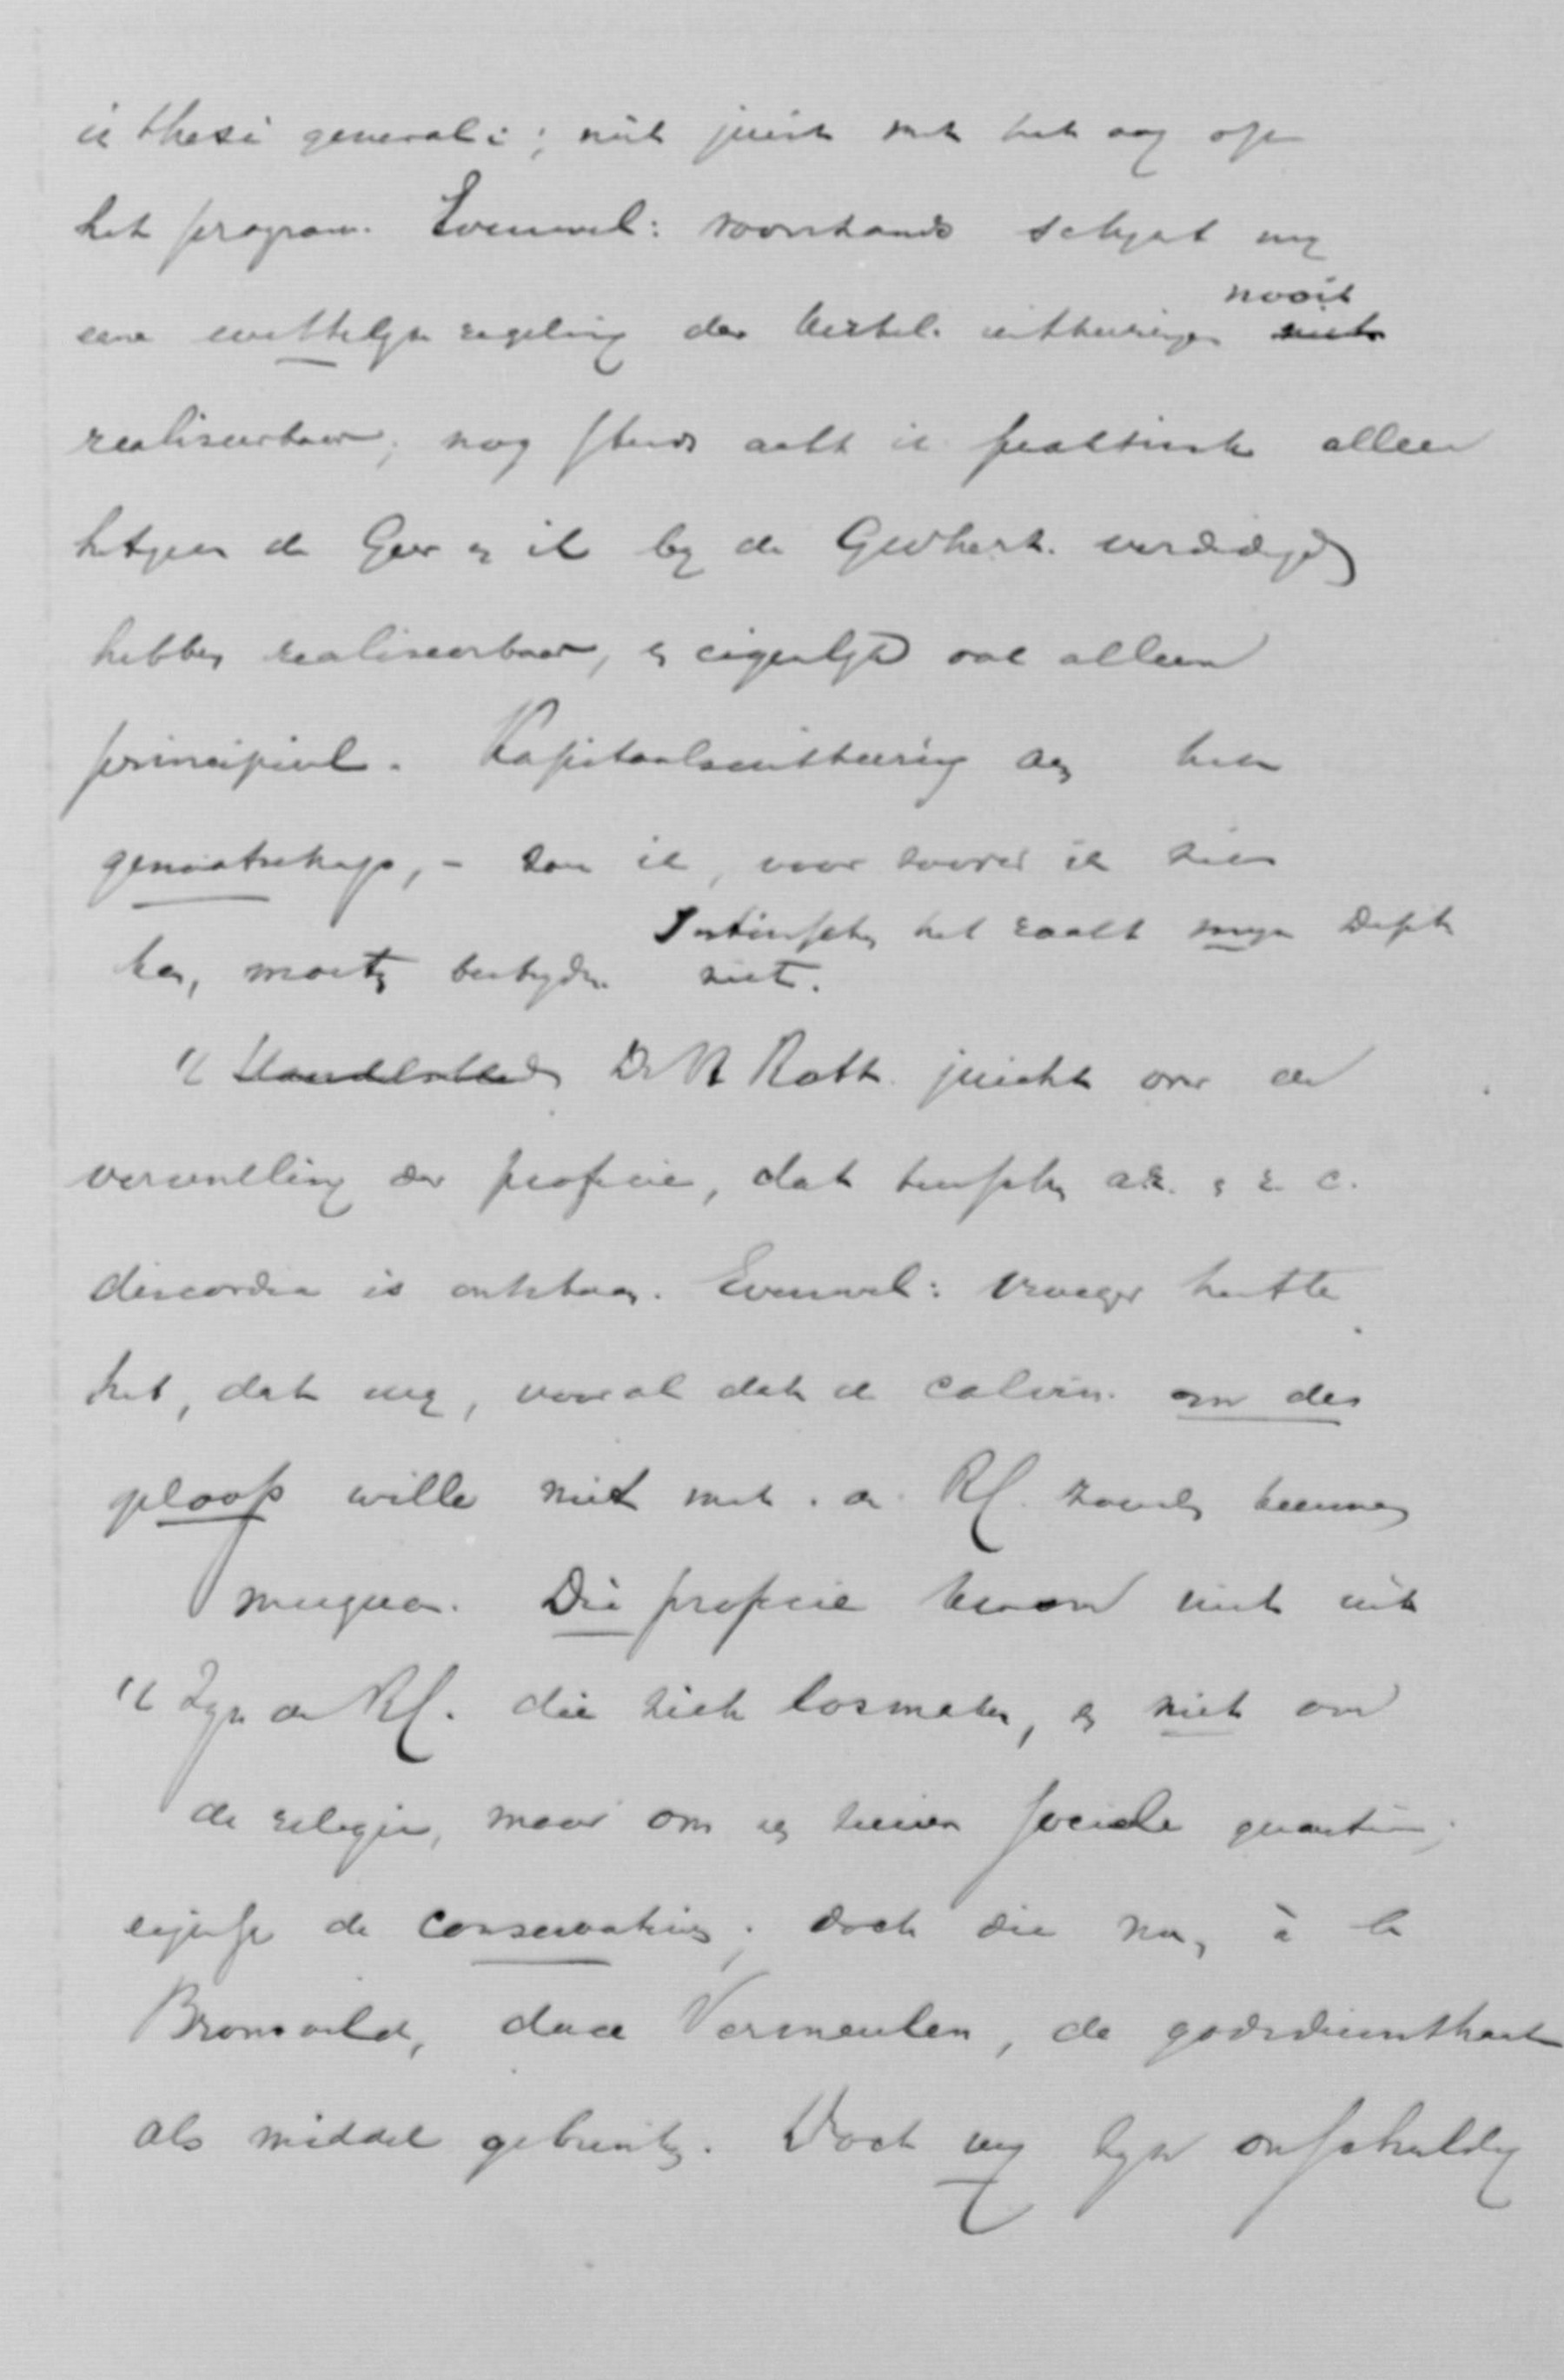 in thesi generali; niet juist met het oog op
het program. Evenwel: voorshands schijnt mij
eene wettelijke regeling der kerkel. uitkeeringen nooit niet
realiseerbaar; nog steeds acht ik practisch alleen
hetgeen de Geer en ik bij de Grwherz. verdedigd
hebben realiseerbaar, en eigenlijk ook alleen
principieel. Kapitaalsuitkeering aan het
genootschap, – zou ik, voor zoover ik zien
kan, moeten bestrijden. Intusschen het raakt mijn Dept
niet.
't Handelsblad De N Rott. juicht over de
vervulling der profecie, dat tusschen a.r. en r. c.
discordia is ontstaan. Evenwel: vroeger heette
het, dat wij, vooral dat de calvin. om des
geloofs wille niet met de RC. zouden kunnen
meegaan. Die profecie kwam niet uit
't Zijn de RC. die zich losmaken, en niet om
de religie, maar om een zuiver sociale quaestie;
eigenlijk de conservatieven; doch die nu, à la
Bronsveld, deze Vermeulen, de godsdiensthaat
als middel gebruiken. Doch wij zijn onschuldig